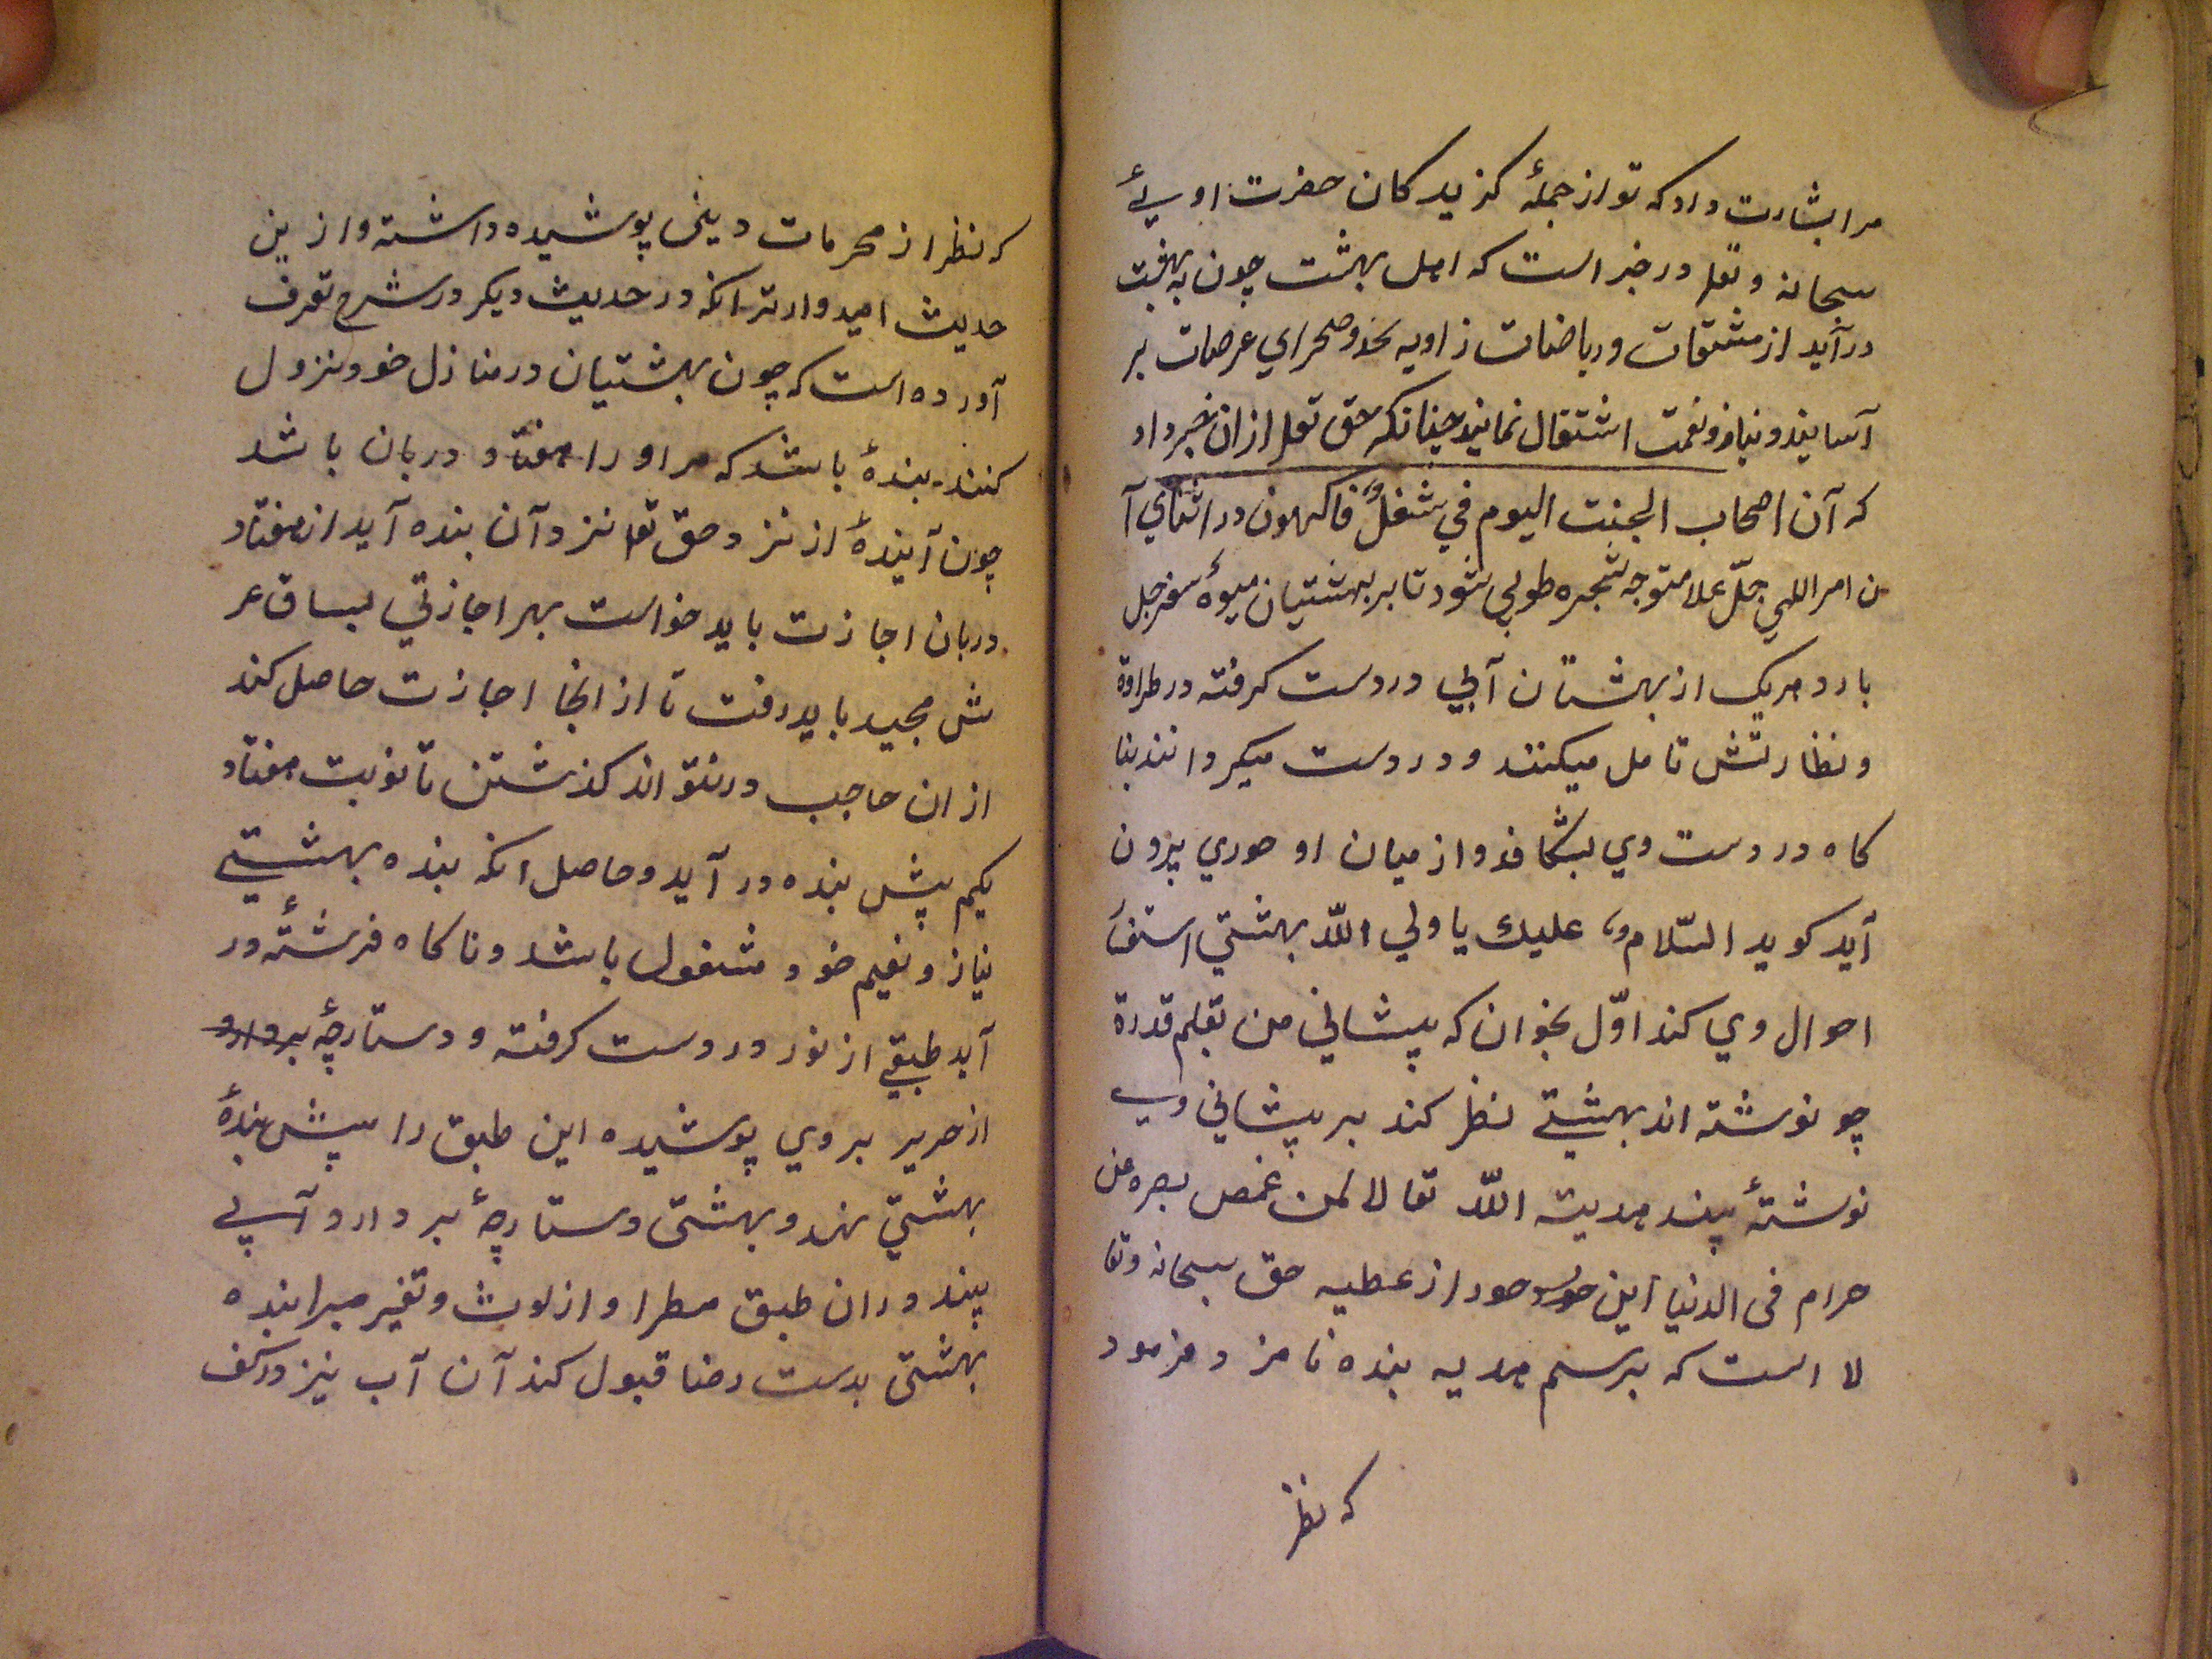 مرا بشارت داد که تو از جملهٔ کزیدکان حضرت اویی
سبحانه و تعلی در خبر است که اهل بهشت چون به بهشت
در آید از مشقات و ریاضات زاویه لحد و صحرای عرصات بر
آسایند و بناز و نعمت اشتغال نمایند چنانکه حق تعلی ازان خبر داد
که آن اصحاب الجنت الیوم فی شغلٍ فاکهون در اثنای آ
ن امر اللهی جلّ علا متوجه شجره طوبی شود تا بر بهشتیان میوهٔ سفرجل
بارد هریک از بهشتان آبی در دست کرفته در طراوة
و نظارتش تامل میکنند و در دست میکردانند بنا
کاه در دست وی بشکافد و از میان او حوری بیرون
آید کوید السّلام علیك یا ولی اللّه بهشتی استف
احوال وی کند اوّل بخوان که پیشانی من بقلم قدرة
چو نوشته اند بهشتی نظر کند بر پیشانی وی
نوشتهٔ بیند هدیته اللّه تعالا لمن غمض بصره عن
حرام فی الدنیا این حور از عطیه حق سبحانه و تعا
لا است که برسم هدیه بنده نامزد فرمود
که نظر
که نظر از محرمات دینی پوشیده داشته و ازین
حدیث امیدوارتر انکه در حدیث دیکر در شرح تعرف
آورده است که چون بهشتیان در منازل خود نزول
کنند بندهٔ باشد که مر او را هفتاد دربان باشد
چون آیندهٔ از نزد حق تعا نزد آن بنده آید از هفتاد
دربان اجازت باید خواست بهر اجازتی بساق عر
ش مجید باید رفت تا از انجا اجازت حاصل کند
ازان حاجب در نتواند کذشتن تا نوبت هفتاد
یکم پیش بنده در آید و حاصل انکه بنده بهشتی
بناز و نعیم خود مشغول باشد و ناکاه فرشتهٔ در
آید طبقی از نور در دست کرفته و دستارچهٔ
از حریر بر وی پوشیده این طبق را پیش بندهٔ
بهشتی نهد و بهشتی دستارچهٔ بر دارد آبی
بیند دران طبق مطرا و از لوث و تغیر مبرا بنده
بهشتی بدست رضا قبول کند آن آب نیز در کف